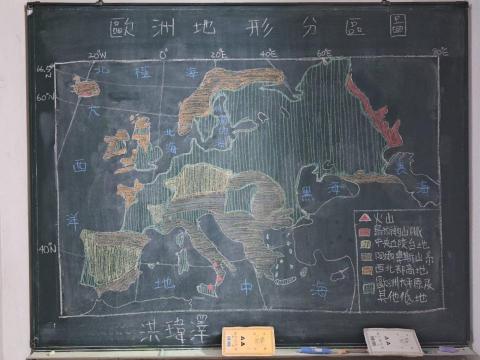 歐洲地形分區圖
20°W 0° 20°E 40°E 60°E 80°E
66.5°N
北極海
60°N
大西洋
北海
波羅的海
黑海
裏海
40°N
地中海
火山
烏拉山脈
中央丘陵台地
阿爾卑斯山系
西北部高地
歐洲大平原及其他低地
洪瑋澤